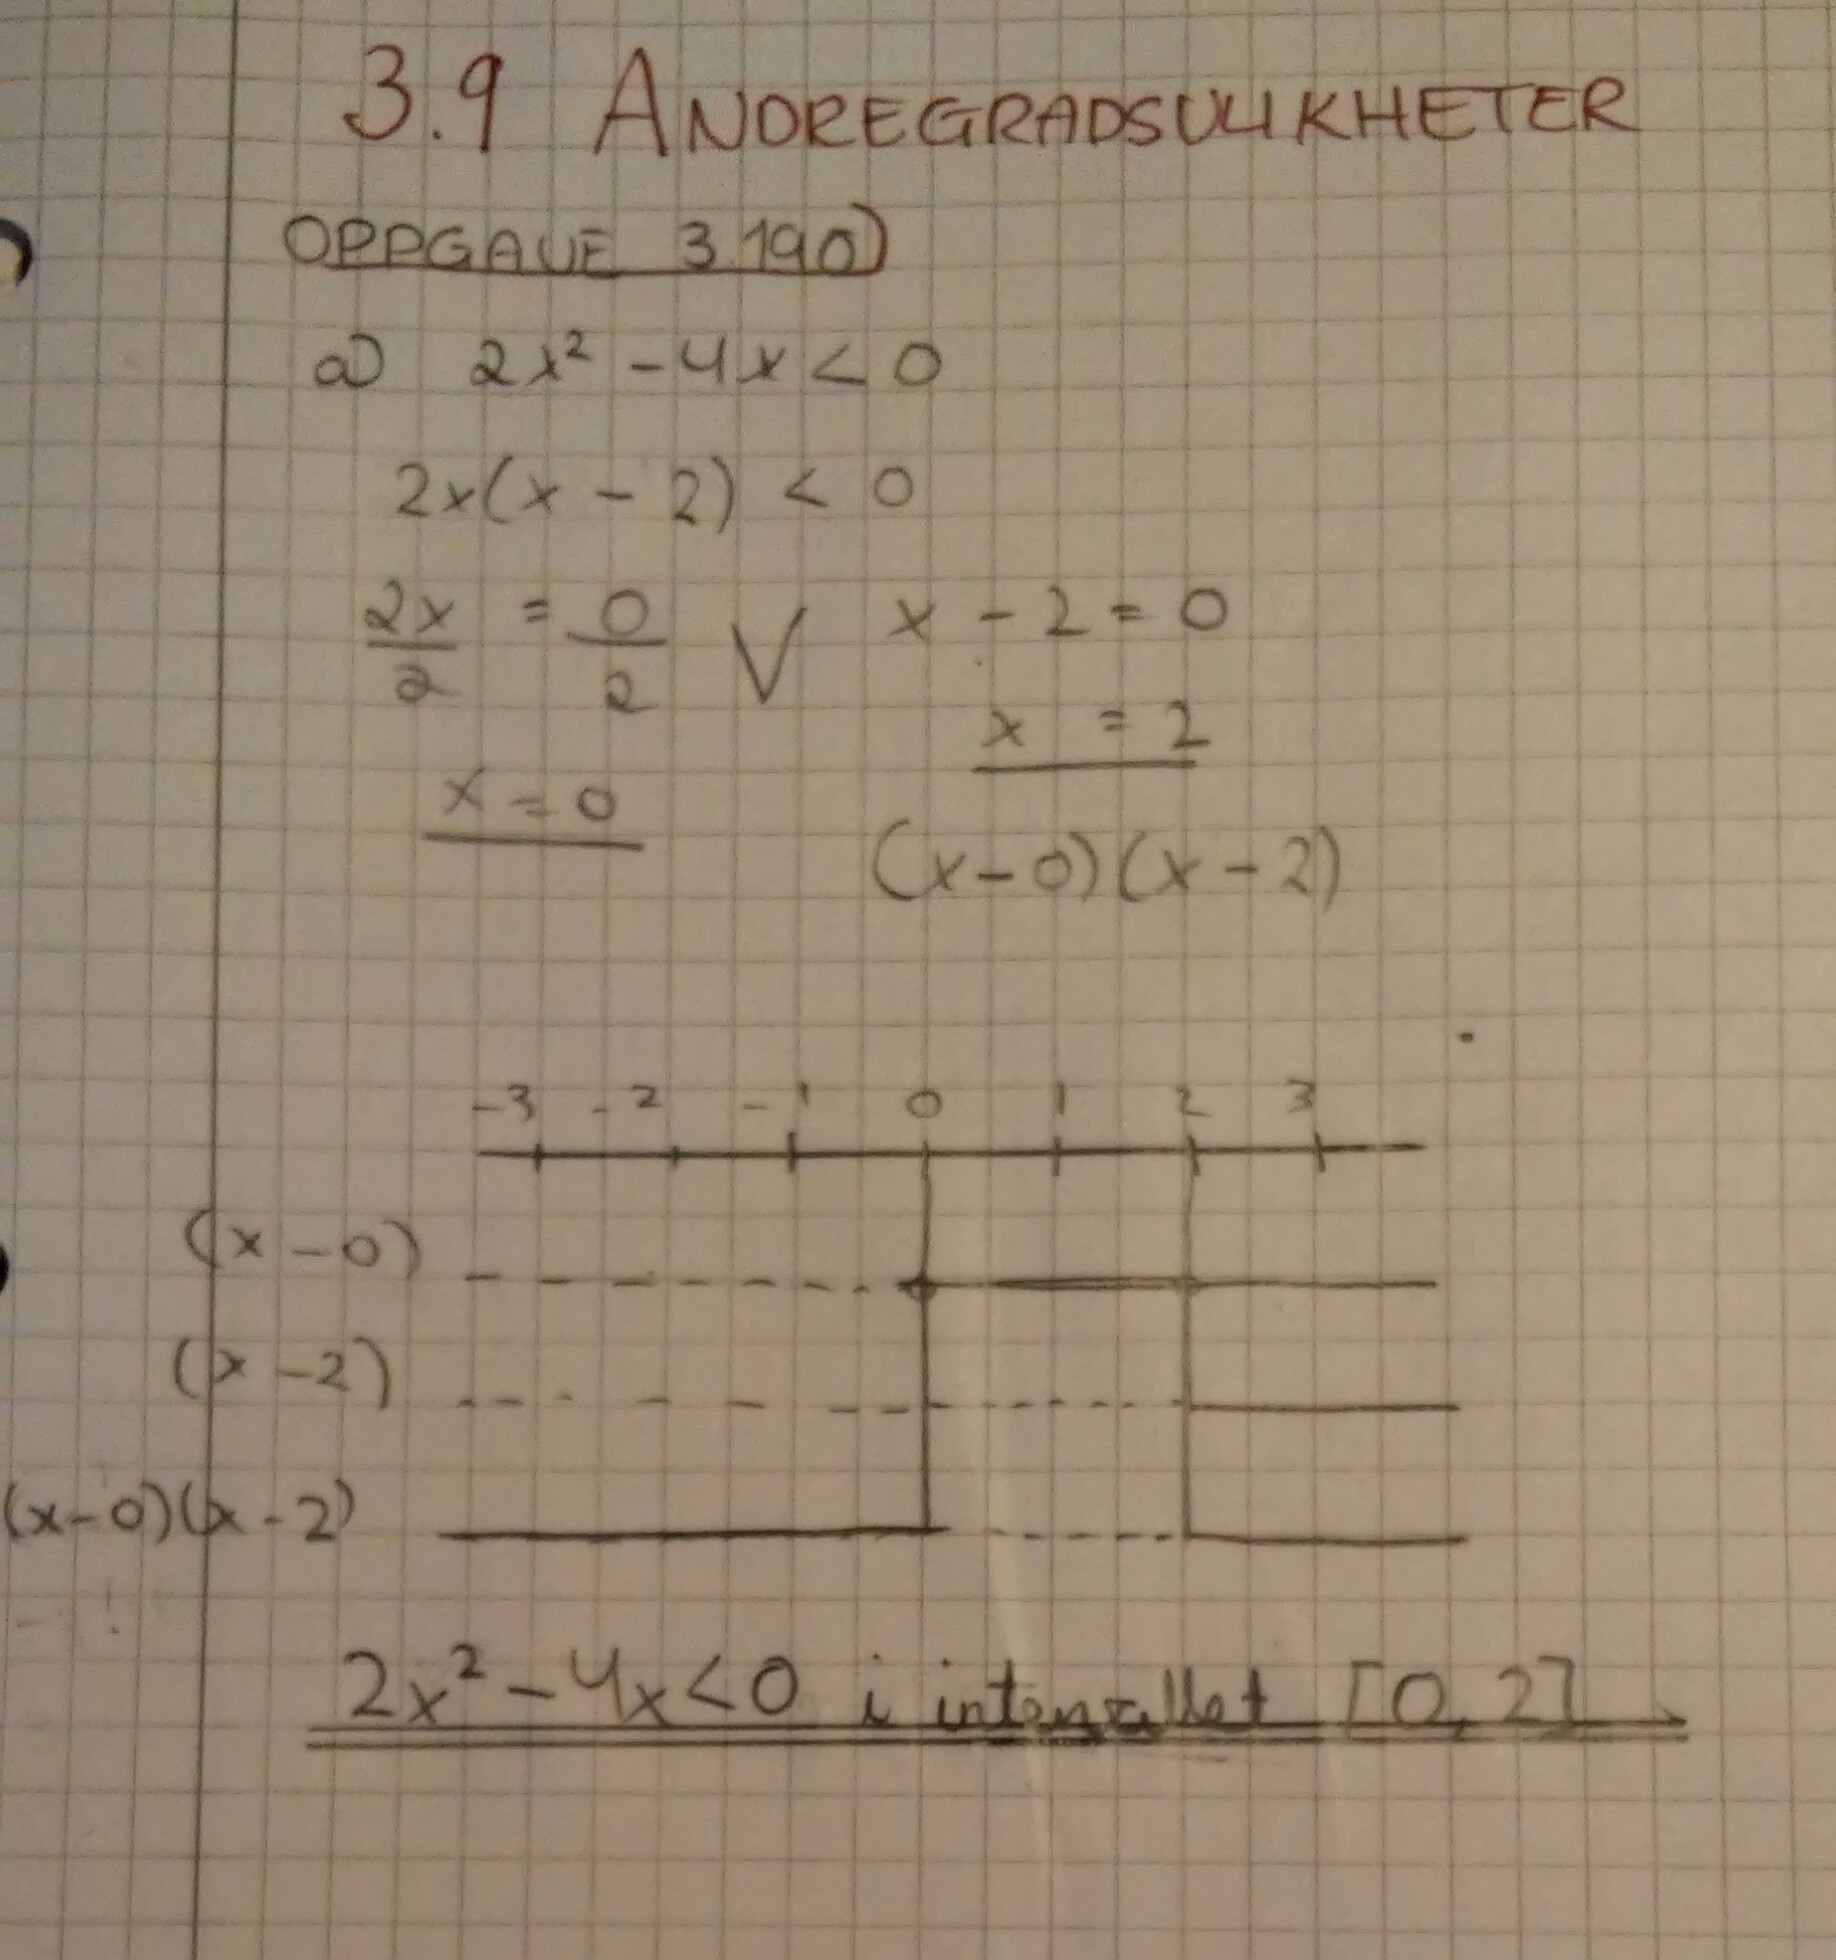 3.9 ANDREGRADSULIKHETER
OPPGAVE 3.190)
a) 2x² - 4x < 0
2x(x - 2) < 0
2x/2 = 0/2 V x - 2 = 0
x = 2
x = 0
(x-0)(x-2)
-3 -2 -1 0 1 2 3
(x-0)
(x-2)
(x-0)(x-2)
2x² - 4x < 0 i intervallet [0, 2]